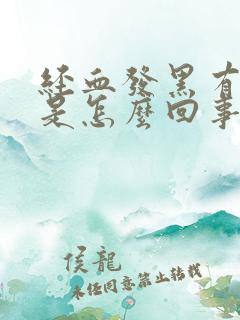 經血發黑有
是怎麼回事
侯龍
未经同意禁止转载